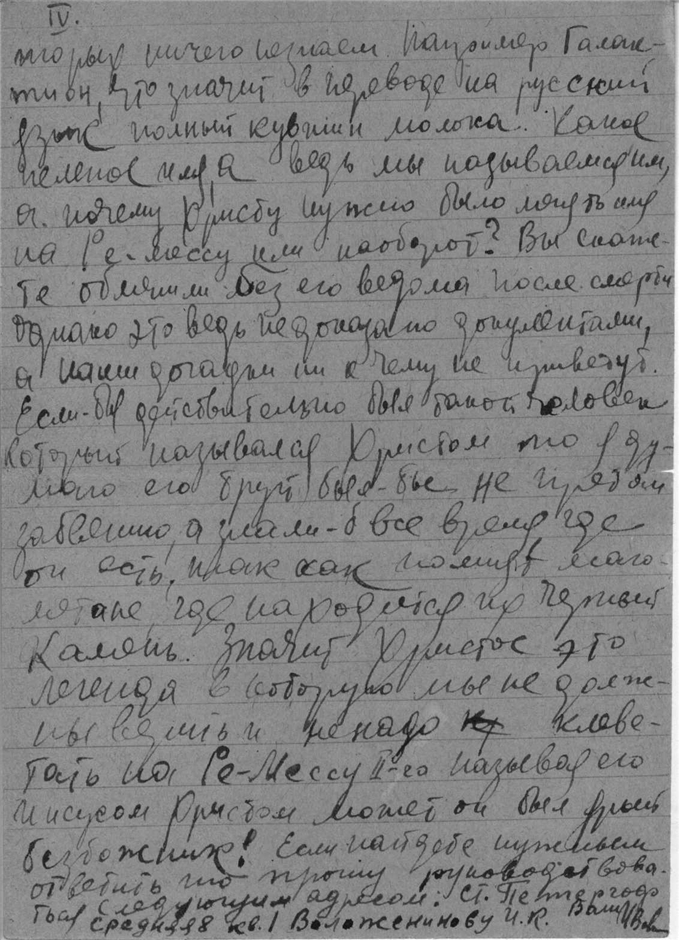 IV.
торых ничего не знаем. Например Галак-
тион, что значит в переводе на русский
язык полный кувшин молока.. Какое
нелепое имя, а ведь мы называемся им,
а. почему Христу нужно было менять имя
на Ре-Мессу или наоборот? Вы скаже-
те обменили без его ведома после смерти
однако это ведь не доказано документами,
а наши догадки ни к чему не приведут.
Если-бы действительно был такой человек
который назывался Христом то я ду-
маю его труп был-бы не предан
забвению, а знали-б все время, где
он есть, так как помнят маго-
метане, где находится их Черный
Камень. Значит Христос это
легенда в которую мы не долж-
ны верить и не надо клеве-
тать на Ре-Мессу II-го называя его
Иисусом Христом может он был ярый
безбожник! Если найдете нужным
ответить то прошу руководствова-
ться следующим адресом: Ст. Петергоф
Средняя 8 кв. 1 Воложенинову И. К.